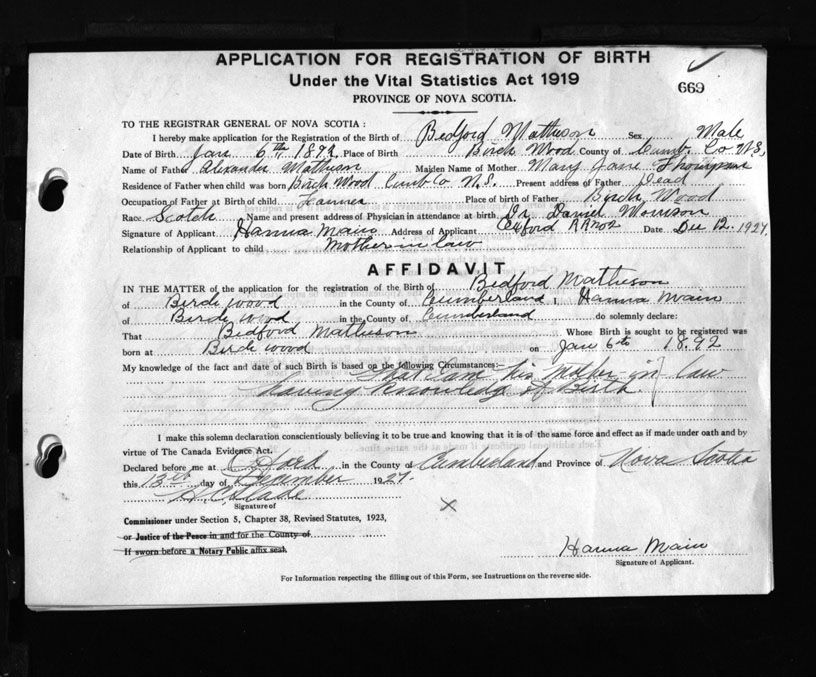 APPLICATION FOR REGISTRATION OF BIRTH
Under the Vital Statistics Act 1919
669
PROVINCE OF NOVA SCOTIA.
TO THE REGISTRAR GENERAL OF NOVA SCOTIA :
I hereby make application for the Registration of the Birth of Bedford Matheson Sex Male
Date of Birth Jan 6th 1892 Place of Birth Birch Wood County of Cumb. Co N.S.
Name of Father Alexander Matheson Maiden Name of Mother Mary Jane Thompson
Residence of Father when child was born Birch Wood Cumb Co N.S. Present address of Father Dead
Occupation of Father at Birth of child Farmer Place of birth of Father Birch Wood
Race Scotch Name and present address of Physician in attendance at birth Dr. Daniel Morrison
Signature of Applicant Hanna Main Address of Applicant Oxford RR No 2 Date Dec 12. 1927.
Relationship of Applicant to child Mother in law
AFFIDAVIT
IN THE MATTER of the application for the registration of the Birth of Bedford Matheson
of Birch wood in the County of Cumberland I, Hanna Main
of Birch Wood in the County of Cumberland do solemnly declare:
That Bedford Matheson Whose Birth is sought to be registered was
born at Birch wood on Jan 6th 1892
My knowledge of the fact and date of such Birth is based on the following Circumstances:— That I am his Mother in law
having knowledge of Birth.
I make this solemn declaration conscientiously believing it to be true and knowing that it is of the same force and effect as if made under oath and by
virtue of The Canada Evidence Act.
Declared before me at Oxford in the County of Cumberland and Province of Nova Scotia
this 13th day of December 1927.
H.C. Slade
Signature of
Commissioner under Section 5, Chapter 38, Revised Statutes, 1923,
or Justice of the Peace in and for the County of
If sworn before a Notary Public affix seal.
Hanna Main
Signature of Applicant.
For Information respecting the filling out of this Form, see Instructions on the reverse side.